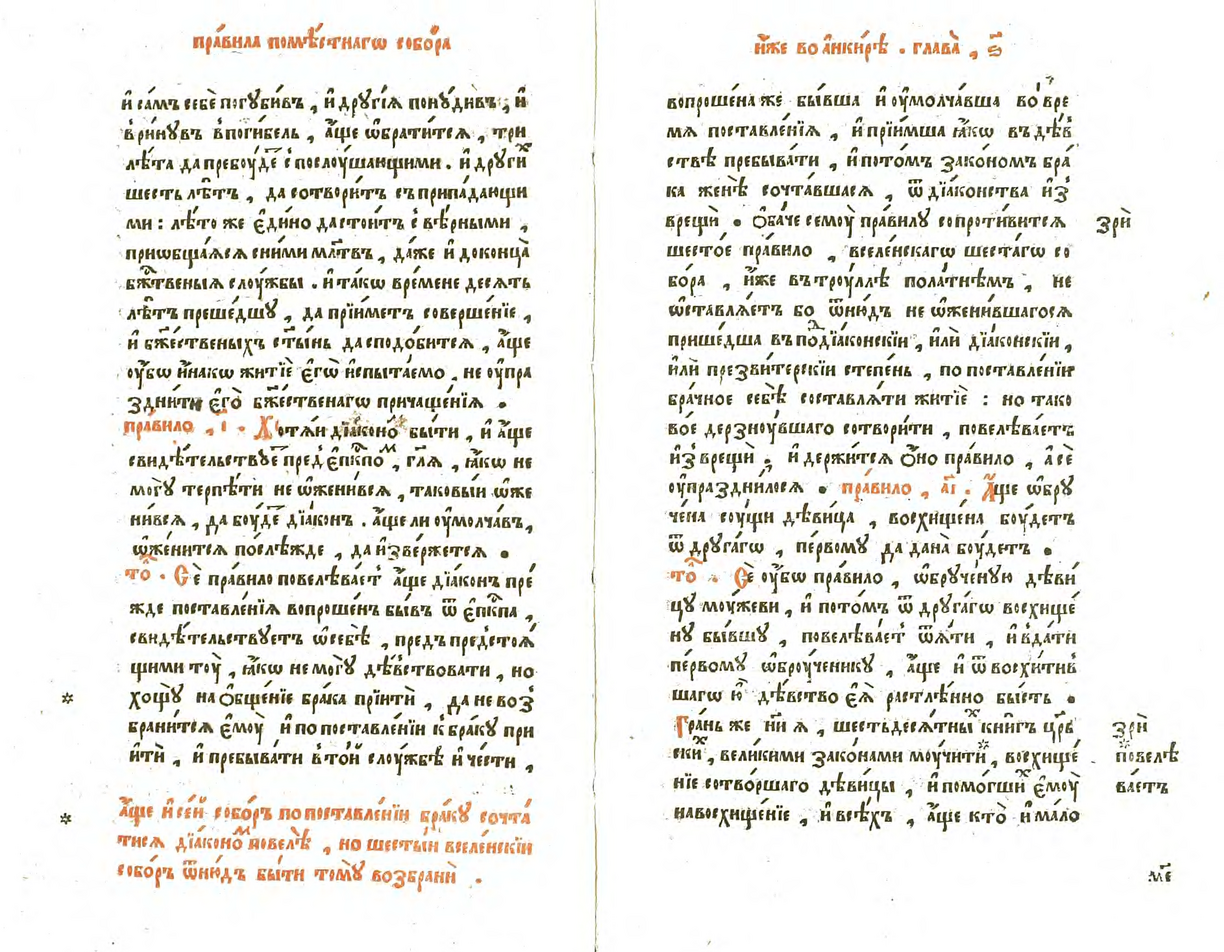 пра́вила помѣ́стнагѡ собо́ра
и҆ са́мъ себѐ погꙋби́въ , и҆ дрꙋгі́ѧ понꙋ́дивъ , и҆
в̾ри́нꙋвъ в̾поги́бель , а҆́ще ѡ҆брати́тсѧ , три
лѣ́та да пребоу́дⷷе с̾ послоу́шающими . и҆ дрꙋгиⷯ
шесть лѣ́тъ , да сотвори́тъ съ припа́дающи
ми : лѣ́то же є҆ди́но да стои́тъ с̾ вѣ́рными ,
приѡбща́ѧсѧ сни́ми млт҃въ , да́же и҆ до конца̀
бж҃твеныѧ слоу́жбы . и҆ та́кѡ вре́мене де́сѧть
лѣ́тъ преше́дшꙋ , да прїи́метъ соверше́нїе ,
и҆ бж҃е́ственыхъ ст҃ы́нь да сподо́битсѧ , а҆́ще
оу҆́бѡ и҆́накѡ житїѐ є҆гѡ̀ и҆спыта́емо . не оу҆пра
здни́ти є҆го̀ бж҃е́ственагѡ причаще́нїѧ .
пра́вило , і҃ . Хотѧ́и дїа́кономъ бы́ти , и҆ а҆́ще
свидѣ́тельствꙋеⷮ пред̾ є҆пкⷭ҇поⷨ , гл҃ѧ , ꙗ҆́кѡ не
могꙋ̀ терпѣ́ти не ѡ҆же́нивсѧ , таковы́и ѡ҆же
ни́всѧ , да боу́деⷮ дїа́кон . а҆́ще ли оу҆молча́въ ,
ѡ҆же́нитсѧ послѣ́жде , да и҆зве́ржетсѧ .
то́лⷦ . Сѐ пра́вило повелѣва́етъ а҆́ще дїа́конъ пре́
жде поставле́нїѧ вопроше́нъ бы́въ ѿ є҆пкⷭ҇па ,
свидѣ́тельствꙋетъ ѡ҆ себѣ̀ , пред̾ предстоѧ́
щими тоу̀ , ꙗ҆́кѡ не могꙋ̀ дѣ́вствовати , но
хощꙋ̀ на ѻ҆бще́нїе бра́ка прїитѝ , да не воз̾
брани́тсѧ є҆моу̀ и҆ по поставле́нїи к̾ бра́кꙋ при
и҆тѝ , и҆ пребыва́ти в̾то́й слоу́жбѣ и҆ че́сти ,
а҆́ще и҆ се́й собо́ръ по поставле́нїи бра́кꙋ сочта́
тисѧ дїа́коноⷨ повелѣ̀ , но шесты́и вселе́нскїи
собо́ръ ѿню́дъ бы́ти томꙋ̀ возбранѝ .
и҆́же во а҆нки́рѣ . глава̀ , ѕ҃
вопроше́на же бы́вша и҆ оу҆молча́вша во вре́
мѧ поставле́нїѧ , и҆ прїи́мша ꙗ҆́кѡ въ дѣ́в̾
ствѣ пребыва́ти , и҆ пото́мъ зако́номъ бра́
ка женѣ̀ сочта́вшасѧ , ѿ дїа́конства и҆з̾
врещѝ . Ѻ҆ба́че семоу̀ пра́вилꙋ сопроти́витсѧ
зрѝ
шесто́е пра́вило , вселе́нскагѡ шеста́гѡ со
бо́ра , и҆́же въ троу́ллѣ пола́тнѣмъ , не
ѡ҆ставлѧ́етъ бо ѿню́дъ не ѡ҆жени́вшагосѧ
прише́дша въ поⷣдїа́конскїи , и҆лѝ дїа́конскїи ,
и҆лѝ презви́терскїи сте́пень , по поставле́нїи
бра́чное себѣ̀ составлѧ́ти житїѐ : но тако
во́е дерзноу́вшаго сотвори́ти , повелѣва́етъ
и҆зврещѝ ; и҆ держи́тсѧ ѻ҆́но пра́вило , а҆ сѐ
оу҆праздни́лосѧ . пра́вило , а҃і . А҆́ще ѡ҆брꙋ
че́на соу́щи дѣви́ца , восхище́на боу́детъ
ѿ дрꙋга́гѡ , пе́рвомꙋ да дана̀ боу́детъ .
то́лⷦ . Сѐ оу҆́бѡ пра́вило , ѡ҆брꙋче́нꙋю дѣви́
цꙋ моу́жеви , и҆ пото́мъ ѿ дрꙋга́гѡ восхище́
нꙋ бы́вшꙋ , повелѣва́етъ ѿѧ́ти , и҆ вда́ти
пе́рвомꙋ ѡ҆броу́ченикꙋ , а҆́ще и҆ ѿ восхи́тив̾
шагѡ ю҆̀ дѣ́вство є҆ѧ̀ растлѣ́нно бы́сть .
Гра́нь же н҃и ѧ , шестьдесѧ́тныⷯ кни́гъ црⷭ҇в
зрѝ
скиⷯ , вели́кими зако́нами моу́чити , восхище́
повелѣ
нїе сотво́ршаго дѣви́цы , и҆ помо́гшиⷯ є҆моу̀
ва́етъ
на восхище́нїе , и҆ всѣ́хъ , а҆́ще кто̀ и҆ ма́ло
мⷷ